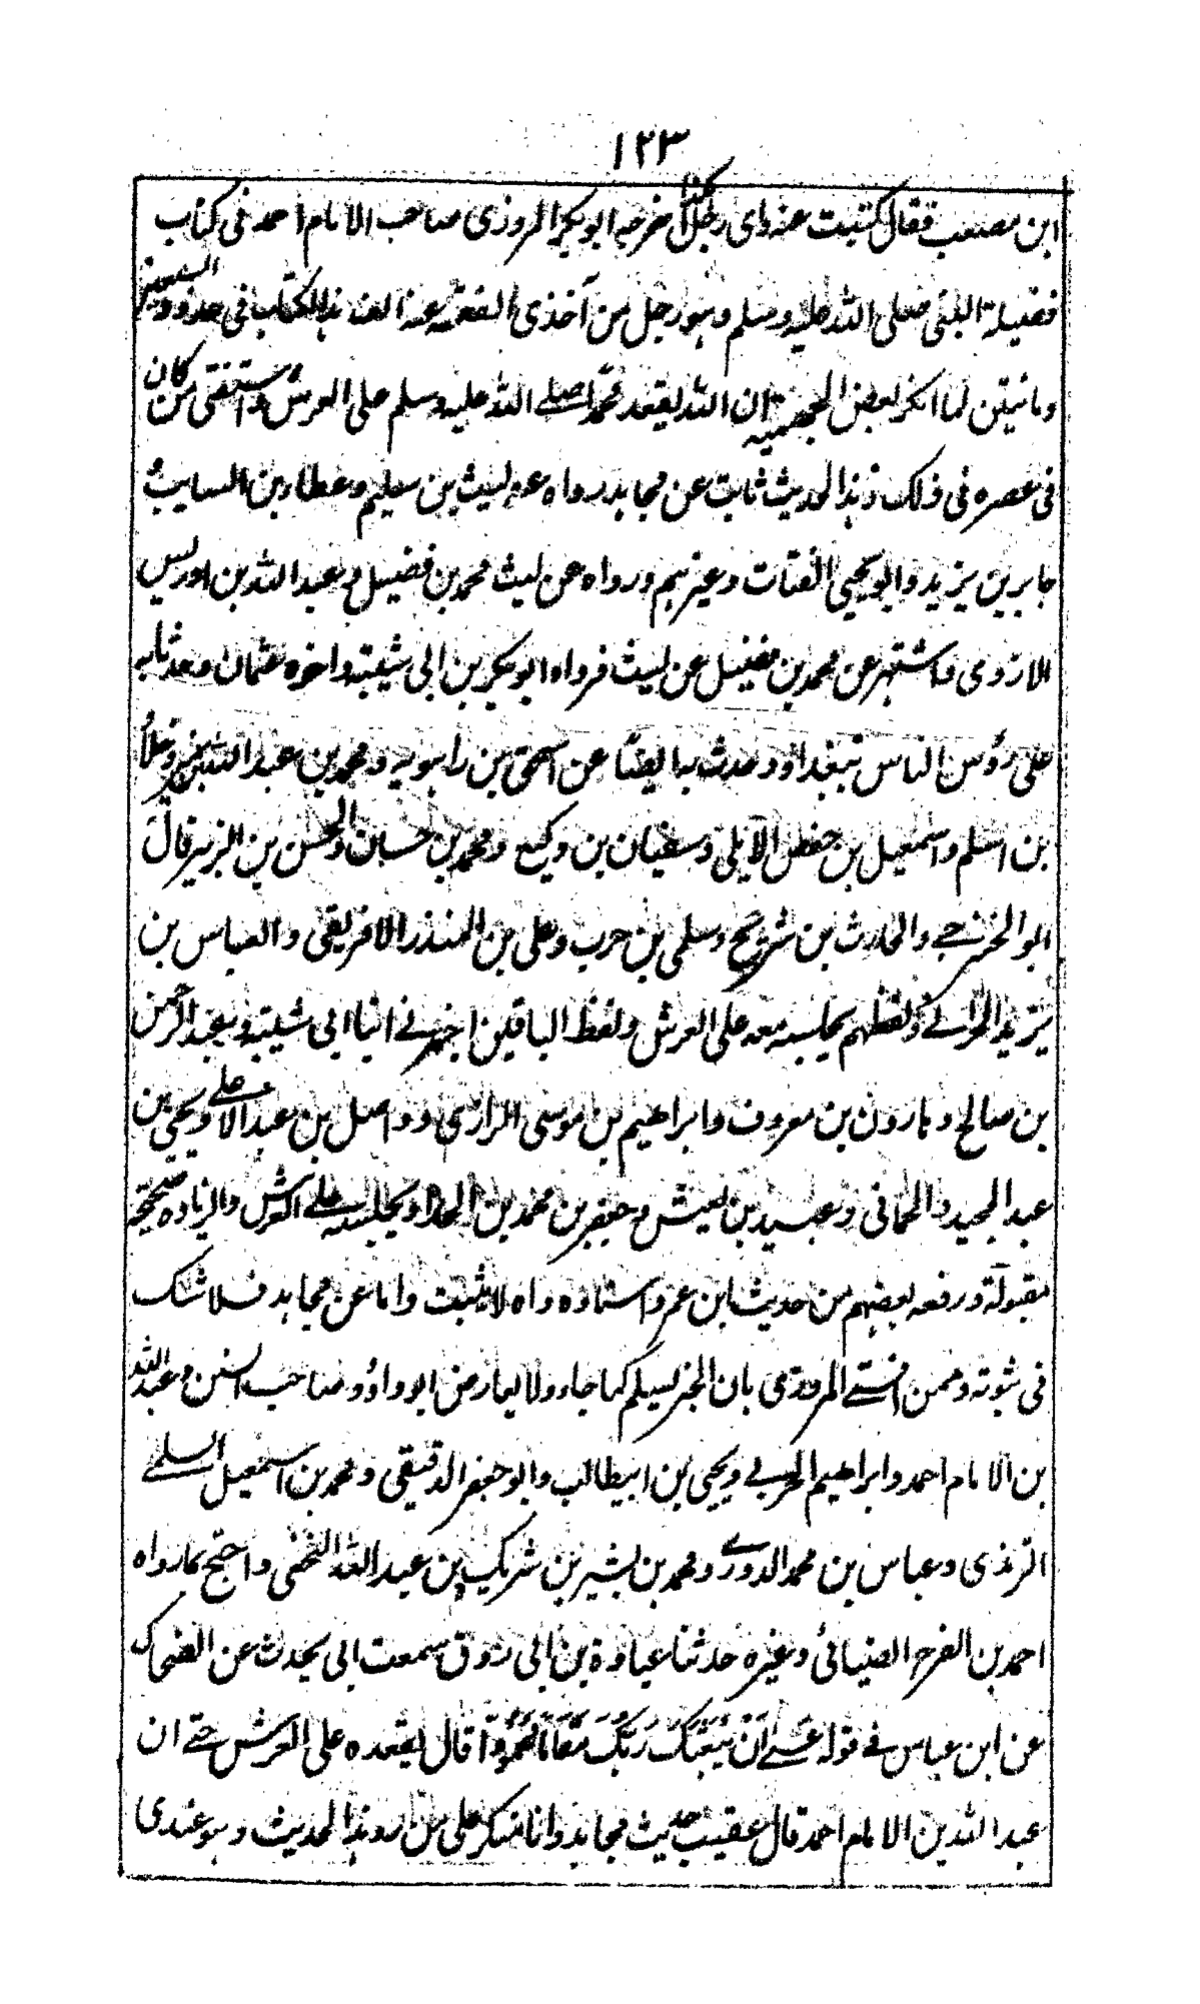 ١٢٣
ابن مصعب فقال كتبت عنه وای رجل خرجه ابوبكر المروزی صاحب الامام احمد فی كتاب
فضيلة النبی صلی الله عليه وسلم وهو رجل من آخذی الفقه عنه الف هذا الكتاب فی حدود
ومائتين لما انكر بعض الجهمية ان الله يقعد محمدا صلے الله عليه وسلم علی العرش واستفتی من كان
فی عصره فی ذلك وهذا الحديث ثابت عن مجاهد رواه عنه ليث بن سليم وعطاء بن السايب و
جابر بن يزيد وابو يحيی القتات وغيرهم ورواه عن ليث محمد بن فضيل و عبد الله بن ادريس
الازدی واشتهر عن محمد بن فضيل عن ليث فرواه ابوبكر بن ابی شيبة واخوه عثمان وحدثا به
علی رؤس الناس ببغداد وحدث به ايضًا عن اسحق بن راهويه ومحمد بن عبد الله بن نمير
بن اسلم واسمعيل بن حفص الايلی وسفيان بن وكيع ومحمد بن حسان والحسن بن الزبير قال
ابو الخزرجے والحارث بن شريح وسلمی بن حرب وعلی بن المنذر الافريقی والعباس بن
يزيد البحرانے ولفظهم يجلسه معه علی العرش ولفظ الباقين اخبرنے ابنا ابی شيبة وعبد الرحمن
بن صالح وهارون بن معروف وابراهيم بن موسی الرازی وواصل بن عبد الاعلے ويحيی بن
عبد الحميد الحمانی وعبيد بن يعيش وجعفر بن محمد بن الحداد يجلسه علے العرش والزيادة صحيحة
مقبولة ورفعه بعضهم من حديث ابن عمر واسناده واه لا يثبت واما عن مجاهد فلا شك
فی ثبوته وممن افتے المروزی بان الخبر يسلم كما جاء ولا يعارض ابو داؤد صاحب السنن و عبد الله
بن الامام احمد وابراهيم الحربے ويحيی بن ابيطالب وابو جعفر الدقيقی ومحمد بن اسمعيل السلمے
الترمذی وعباس بن محمد الدورے ومحمد بن بشير بن شريك بن عبد الله النخعی واحتج بما رواه
احمد بن الفرج الضبائی وغيره حدثنا عبادة بن ابی روق سمعت ابی يحدث عن الضحاك
عن ابن عباس فے قوله عَسٰے اَنْ يَبْعَثَكَ رَبُّكَ مَقَامًا مَحْمُوْدًا قال يقعده علی العرش حتے ان
عبد الله بن الامام احمد قال عقيب حديث مجاهد وانا منكر علی من رد هذا الحديث وهو عندی